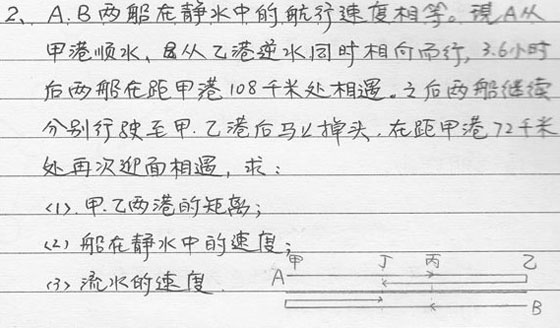 2、A.B两船在静水中的航行速度相等。现A从
甲港顺水、B从乙港逆水同时相向而行,3.6小时
后两船在距甲港108千米处相遇。之后两船继续
分别行驶至甲.乙港后马上掉头.在距甲港72千米
处再次迎面相遇,求:
(1).甲.乙两港的距离;
(2)船在静水中的速度;
(3)流水的速度.
甲 丁 丙 乙
A
B